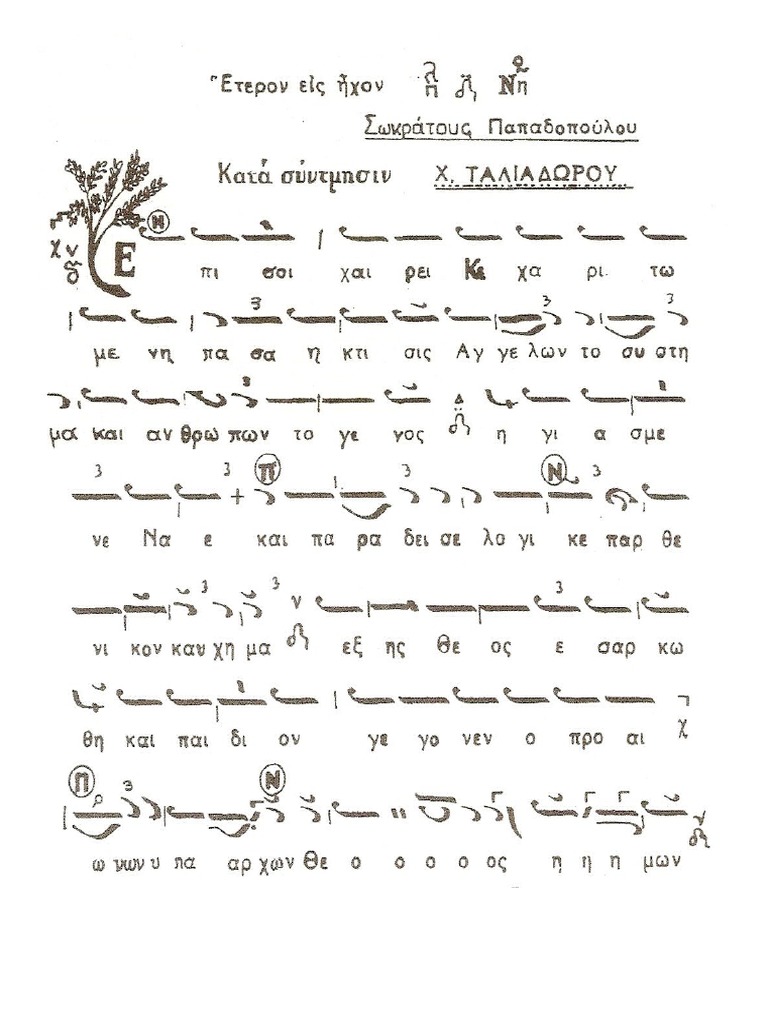 Ἕτερον εἰς ἦχον Νη
Σωκράτους Παπαδοπούλου
Κατά σύντμησιν Χ. ΤΑΛΙΑΔΩΡΟΥ
Ε πι σοι χαι ρει Κε χα ρι τω
με νη πα σα η κτι σις Αγ γε λων το συ στη
μα και αν θρω πων το γε νος η γι α σμε
νε Να ε και πα ρα δει σε λο γι κε παρ θε
νι κον καυ χη μα εξ ης Θε ος ε σαρ κω
θη και παι δι ον γε γο νεν ο προ αι
ω νων υ πα αρ χων Θε ο ο ο ο ος η η η μων